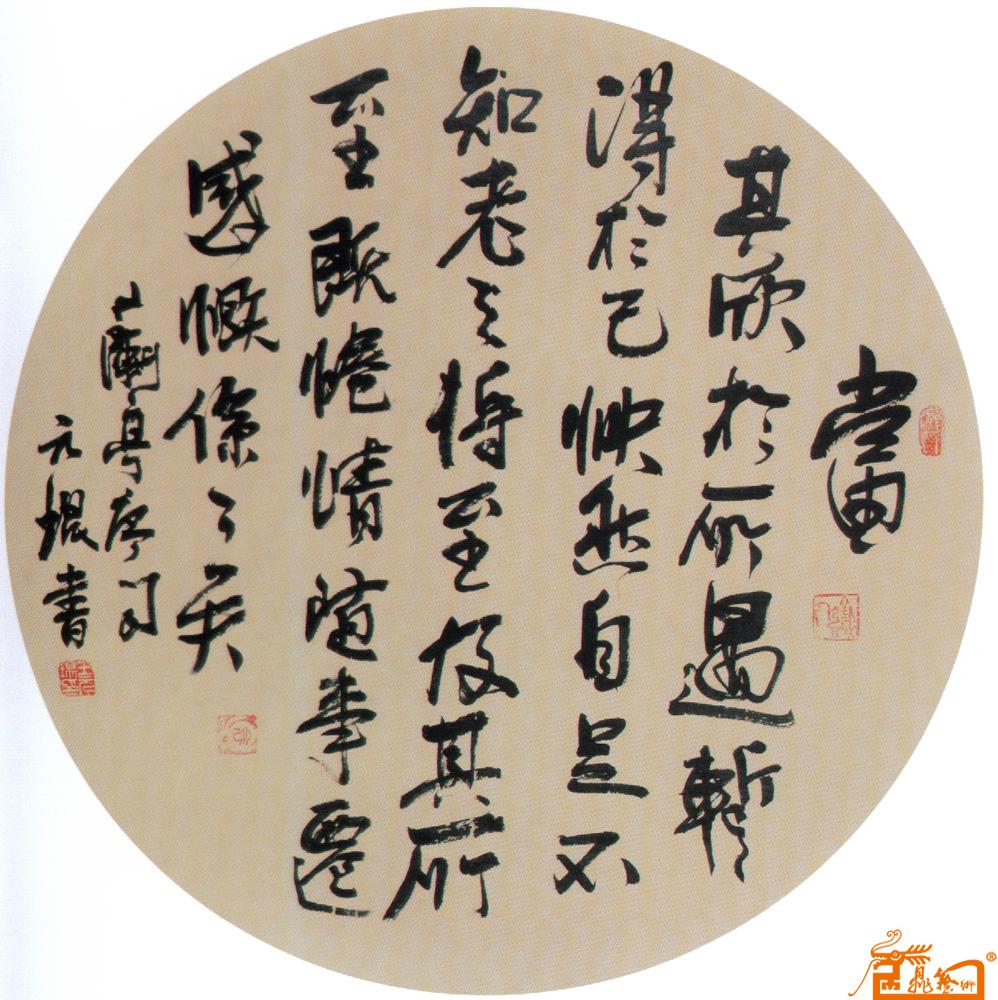 當
其欣於所遇暫
得於己怏然自足不
知老之將至及其所
至既惓情隨事遷
感慨係之矣
蘭亭序句
元琨書